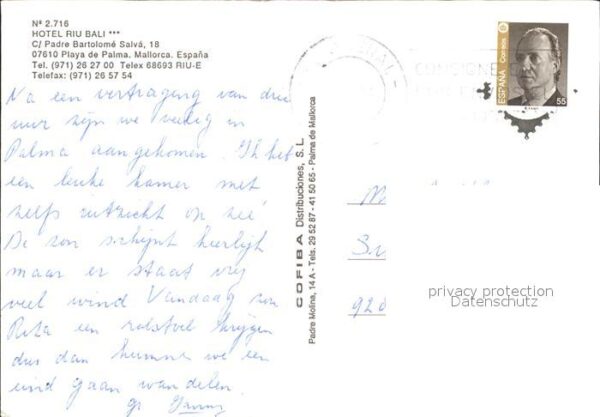 Nº 2.716
HOTEL RIU BALI ***
C/ Padre Bartolomé Salvá, 18
07610 Playa de Palma. Mallorca. España
Tel. (971) 26 27 00  Telex 68693 RIU-E
Telefax: (971) 26 57 54
Na een vertraging van drie
uur zijn we veilig in
Palma aangekomen.
een leuke kamer met
zelfs uitzicht op zee!
De zon schijnt heerlijk
maar er staat vrij
veel wind Vandaag zou
Rita een rolstoel krijgen
dus dan kunnen we een
eind gaan wandelen.
gr
COFIBA Distribuciones, S. L.
Padre Molina, 14 A - Tels. 29 52 87 - 41 50 65 - Palma de Mallorca
CONSIGNE
ESPAÑA
Correos
55
M
920
privacy protection
Datenschutz